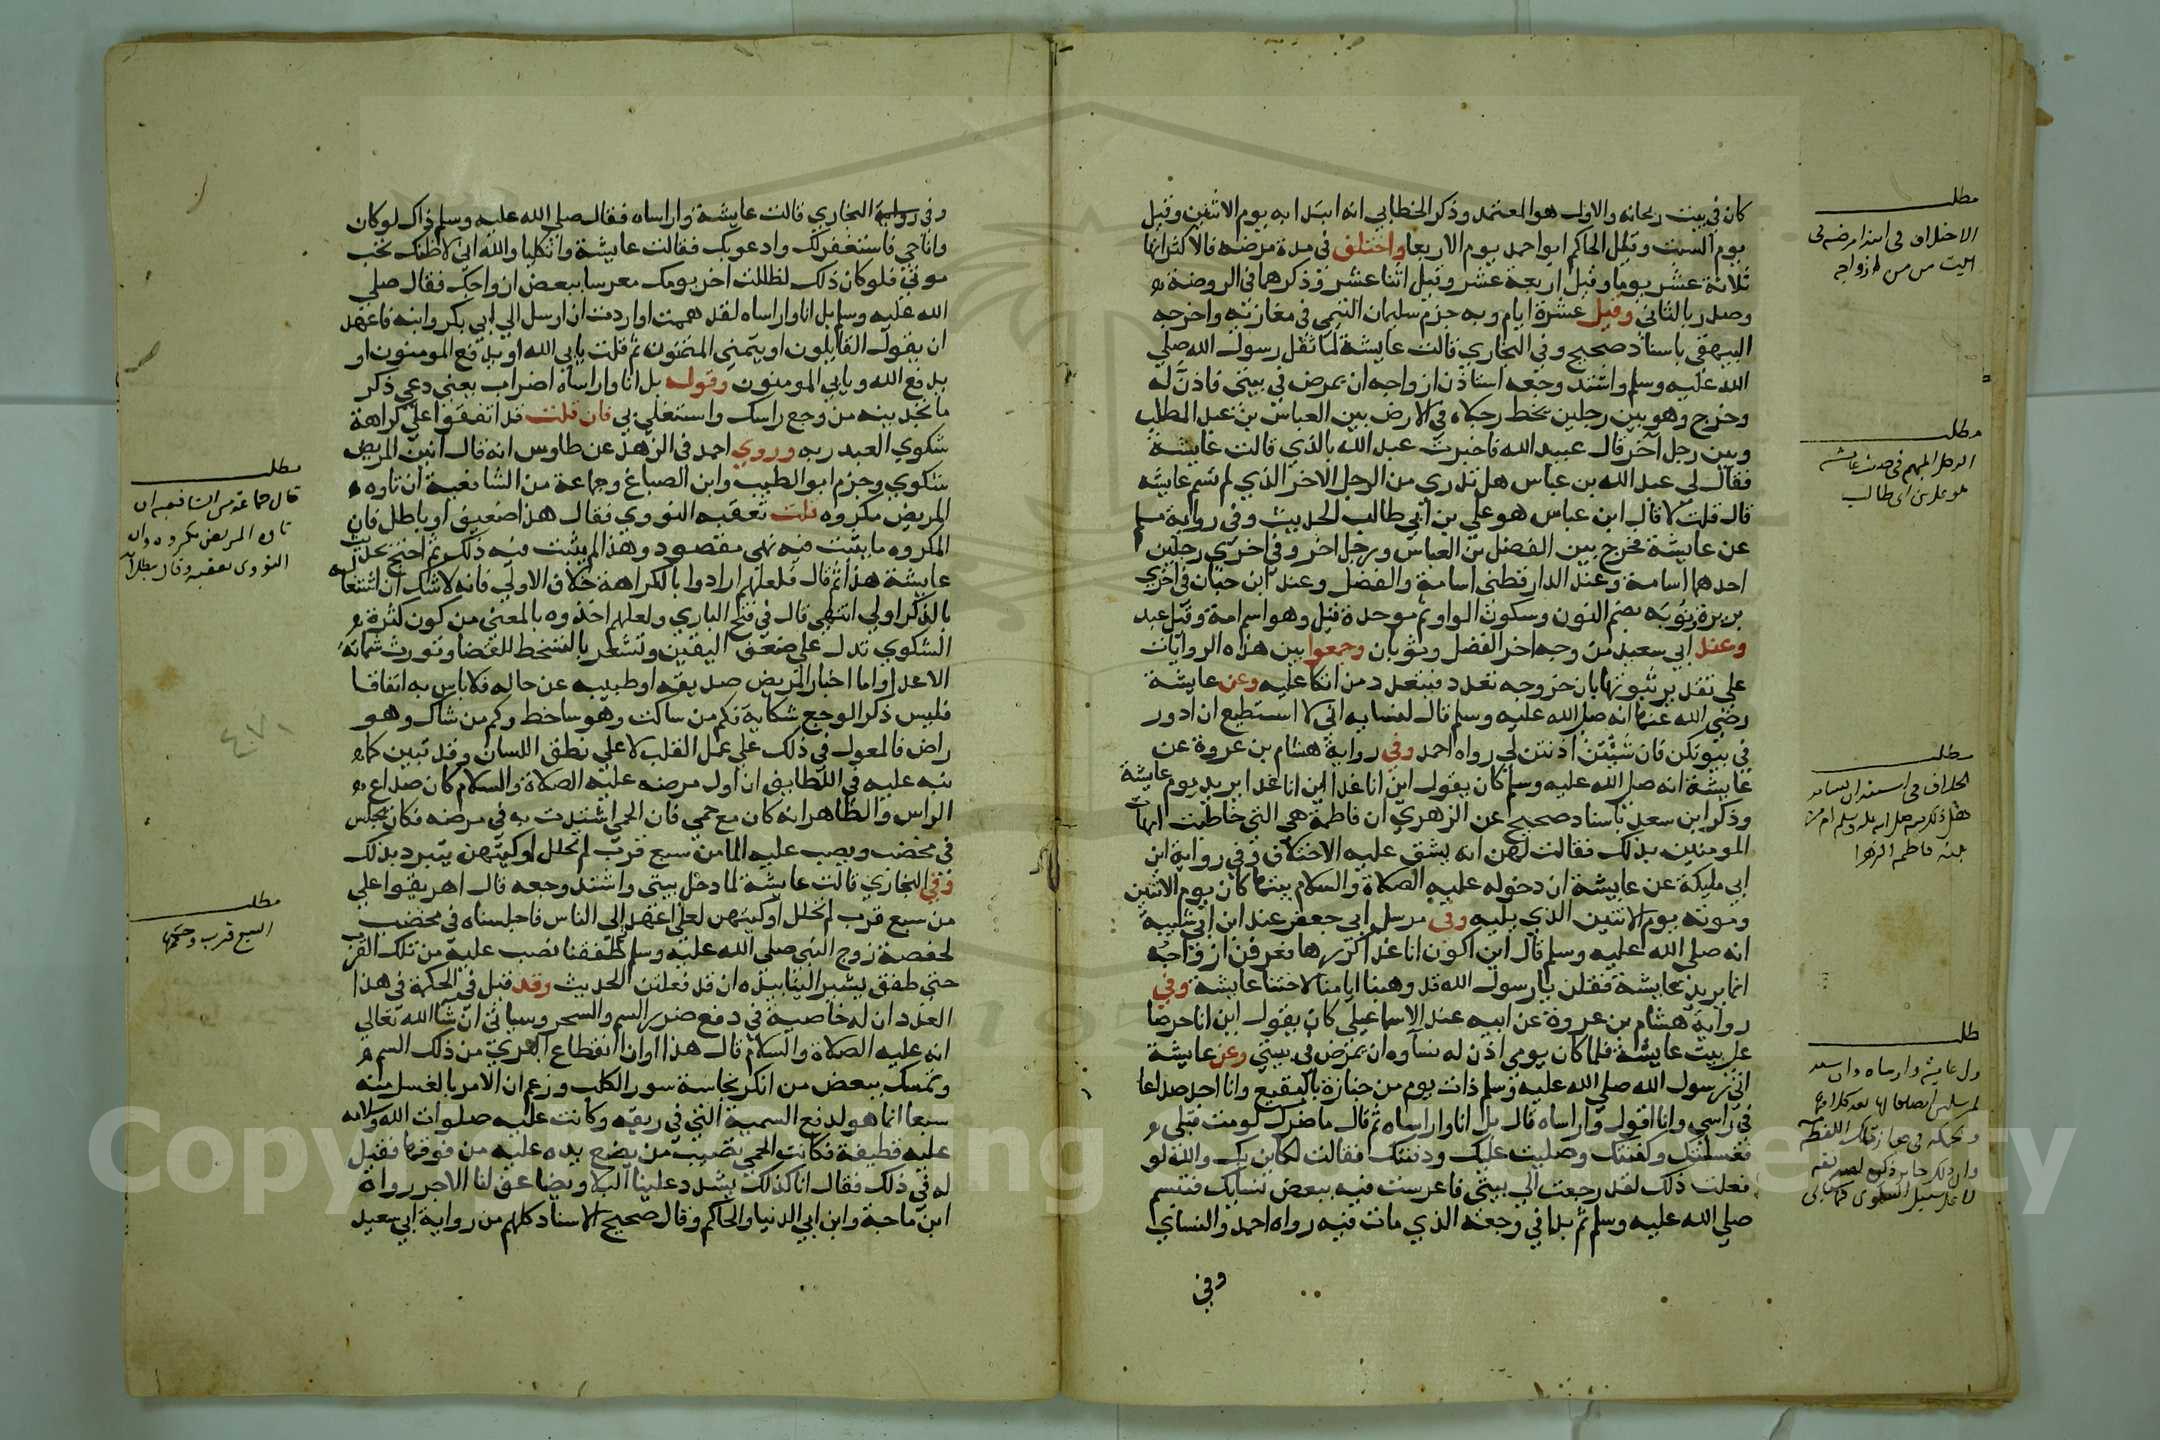 كان في بيت ريحانه والاول هو المعتمد وذكر الخطابي انه ابتدا به يوم الاثنين وقيل
يوم السبت وقيل الحاكم ابو احمد يوم الاربعا واختلف في مدة مرضه فالاكثر انها
ثلاثة عشر يوما وقيل اربعة عشر وقيل اثنا عشر وذكرهما في الروضة
وصدر بالثاني وقيل عشرة ايام وبه جزم سليمان التيمي في مغازيه واخرجه
البيهقي باسناد صحيح وفي البخاري قالت عايشة لما ثقل رسول الله صلي
الله عليه وسلم واشتد وجعه استاذن ازواجه ان يمرض في بيتي فاذن له
وخرج وهو بين رجلين تخط رجلاه في الارض بين العباس بن عبد المطلب
وبين رجل آخر قال عبيد الله فاخبرت عبد الله بالذي قالت عايشة
فقال لي عبد الله بن عباس هل تدري من الرجل الاخر الذي لم تسم عايشه
قال قلت لا قال ابن عباس هو علي بن ابي طالب الحديث وفي رواية مسلم
عن عايشة فخرج بين الفضل بن العباس ورجل اخر وفي اخري رجلين
احدهما اسامة وعند الدارقطني اسامة والفضل وعند ابن حبان في اخري
بريرة ونوبه بضم النون وسكون الواو ثم موحدة قيل وهو اسم امة وقيل عبد
وعند ابن سعيد من وجه اخر الفضل وثوبان وجمعوا بين هذه الروايات
علي تقدير ثبوتها بان خروجه تعدد فيتعدد من اتكا عليه وعن عايشة
رضي الله عنها انه صلي الله عليه وسلم قال لنسايه اني لا استطيع ان ادور
في بيوتكن فان شئتن اذنتن لي رواه احمد وفي رواية هشام بن عروة عن
عايشة انه صلي الله عليه وسلم كان يقول اين انا غدا اين انا غدا يريد يوم عايشة
وذكر ابن سعد باسناد صحيح عن الزهري ان فاطمة هي التي خاطبت امهات
المومنين بذلك فقالت لهن انه يشق عليه الاختلاف وفي رواية ابن
ابي مليكة عن عايشة ان دخوله عليه الصلاة والسلام بيتها كان يوم الاثنين
وموته يوم الاثنين الذي يليه وفي مرسل ابي جعفر عند ابن ابي شيبة
انه صلي الله عليه وسلم قال اين اكون انا غدا كررها فعرفن ازواجه
انما يريد عايشة فقلن يا رسول الله قد وهبنا ايامنا لاختنا عايشة وفي
رواية هشام بن عروة عن ابيه عند الاسماعيلي كان يقول اين انا حرصا
علي بيت عايشة فلما كان يومي اذن له نساوه ان يمرض في بيتي وعن عايشة
اتي رسول الله صلي الله عليه وسلم ذات يوم من جنازة بالبقيع وانا اجد صداعا
في راسي وانا اقول واراساه قال بل انا واراساه ثم قال ما ضرك لو مت قبلي
فغسلتك وكفنتك وصليت عليك ودفنتك فقالت لكاني بك والله لو
فعلت ذلك لقد رجعت الي بيتي فاعرست فيه ببعض نسايك فتبسم
صلي الله عليه وسلم ثم بدا في وجعه الذي مات فيه رواه احمد والنساي
وفي
مطلب
الاختلاف في ابتدا مرضه في
مطلب
الرجل المبهم في حديث عايشه
هو علي بن ابي طالب
مطلب
مطلب
وفي رواية البخاري قالت عايشة واراساه فقال صلي الله عليه وسلم ذاك لو كان
وانا حي فاستغفر لك وادعو لك فقالت عايشة واثكلياه والله اني لاظنك تحب
موتي فلو كان ذلك لظللت اخر يومك معرسا ببعض ازواجك فقال صلي
الله عليه وسلم بل انا واراساه لقد هممت او اردت ان ارسل الي ابي بكر وابنه فاعهد
ان يقول القايلون او يتمني المتمنون ثم قلت يابي الله او يدفع المومنون او
يدفع الله ويابي المومنون وقوله بل انا واراساه اضراب يعني دعي ذكر
ما تجدينه من وجع راسك واشتغلي بي فان قلت قد اتفقوا علي كراهة
شكوي العبد ربه وروي احمد في الزهد عن طاوس انه قال انين المريض
شكوي وجزم ابو الطيب وابن الصباغ وجماعة من الشافعية ان تاوه
المريض مكروه قلت تعقبه النووي فقال هذا ضعيف او باطل فان
المكروه ما يثبت فيه نهي مقصود وهذا لم يثبت فيه ذلك ثم احتج بحديث
عايشة هذا ثم قال فلعلهم ارادوا بالكراهة خلاف الاولي فانه لا شك ان اشتغاله
بالذكر اولي انتهي قال في فتح الباري ولعلهم اخذوه بالمعني من كون كثرة
الشكوي تدل علي ضعف اليقين وتشعر بالتسخط للقضا وتورث شماتة
الاعدا واما اخبار المريض صديقه او طبيبه عن حاله فلا باس به اتفاقا
فليس ذكر الوجع شكاية فكم من ساكت وهو ساخط وكم من شاك وهو
راض فالمعول في ذلك علي عمل القلب لا علي نطق اللسان وقد تبين كما
نبه عليه في اللطايف ان اول مرضه عليه الصلاة والسلام كان صداع
الراس والظاهر انه كان مع حمي فان الحمي اشتدت به في مرضه فكان يجلس
في مخضب ويصب عليه الما من سبع قرب لم تحلل اوكيتهن يتبرد بذلك
وفي البخاري قالت عايشة لما دخل بيتي واشتد وجعه قال اهريقوا علي
من سبع قرب لم تحلل اوكيتهن لعلي اعهد الي الناس فاجلسناه في مخضب
لحفصة زوج النبي صلي الله عليه وسلم ثم طفقنا نصب عليه من تلك القرب
حتي طفق يشير الينا بيده ان قد فعلتن الحديث وقد قيل في الحكمة في هذا
العدد ان له خاصية في دفع ضرر السم والسحر وسياتي ان شا الله تعالي
انه عليه الصلاة والسلام قال هذا اوان انقطاع ابهري من ذلك السم
وتمسك ببعض من انكر نجاسة سور الكلب وزعم ان الامر بالغسل منه
سبعا انما هو لدفع السمية التي في ريقه وكانت عليه صلوات الله وسلامه
عليه قطيفة فكانت الحمي تصيب من يضع يده عليه من فوقها فقيل
له في ذلك فقال انا كذلك يشدد علينا البلا ويضاعف لنا الاجر رواه
ابن ماجة وابن ابي الدنيا والحاكم وقال صحيح الاسناد كلهم من رواية ابي سعيد
مطلب
قال جماعة من الشافعية ان
تاوه المريض مكروه وان
النووي تعقبه وقال
مطلب
السبع قرب وحكمتها
Copy ing ersity